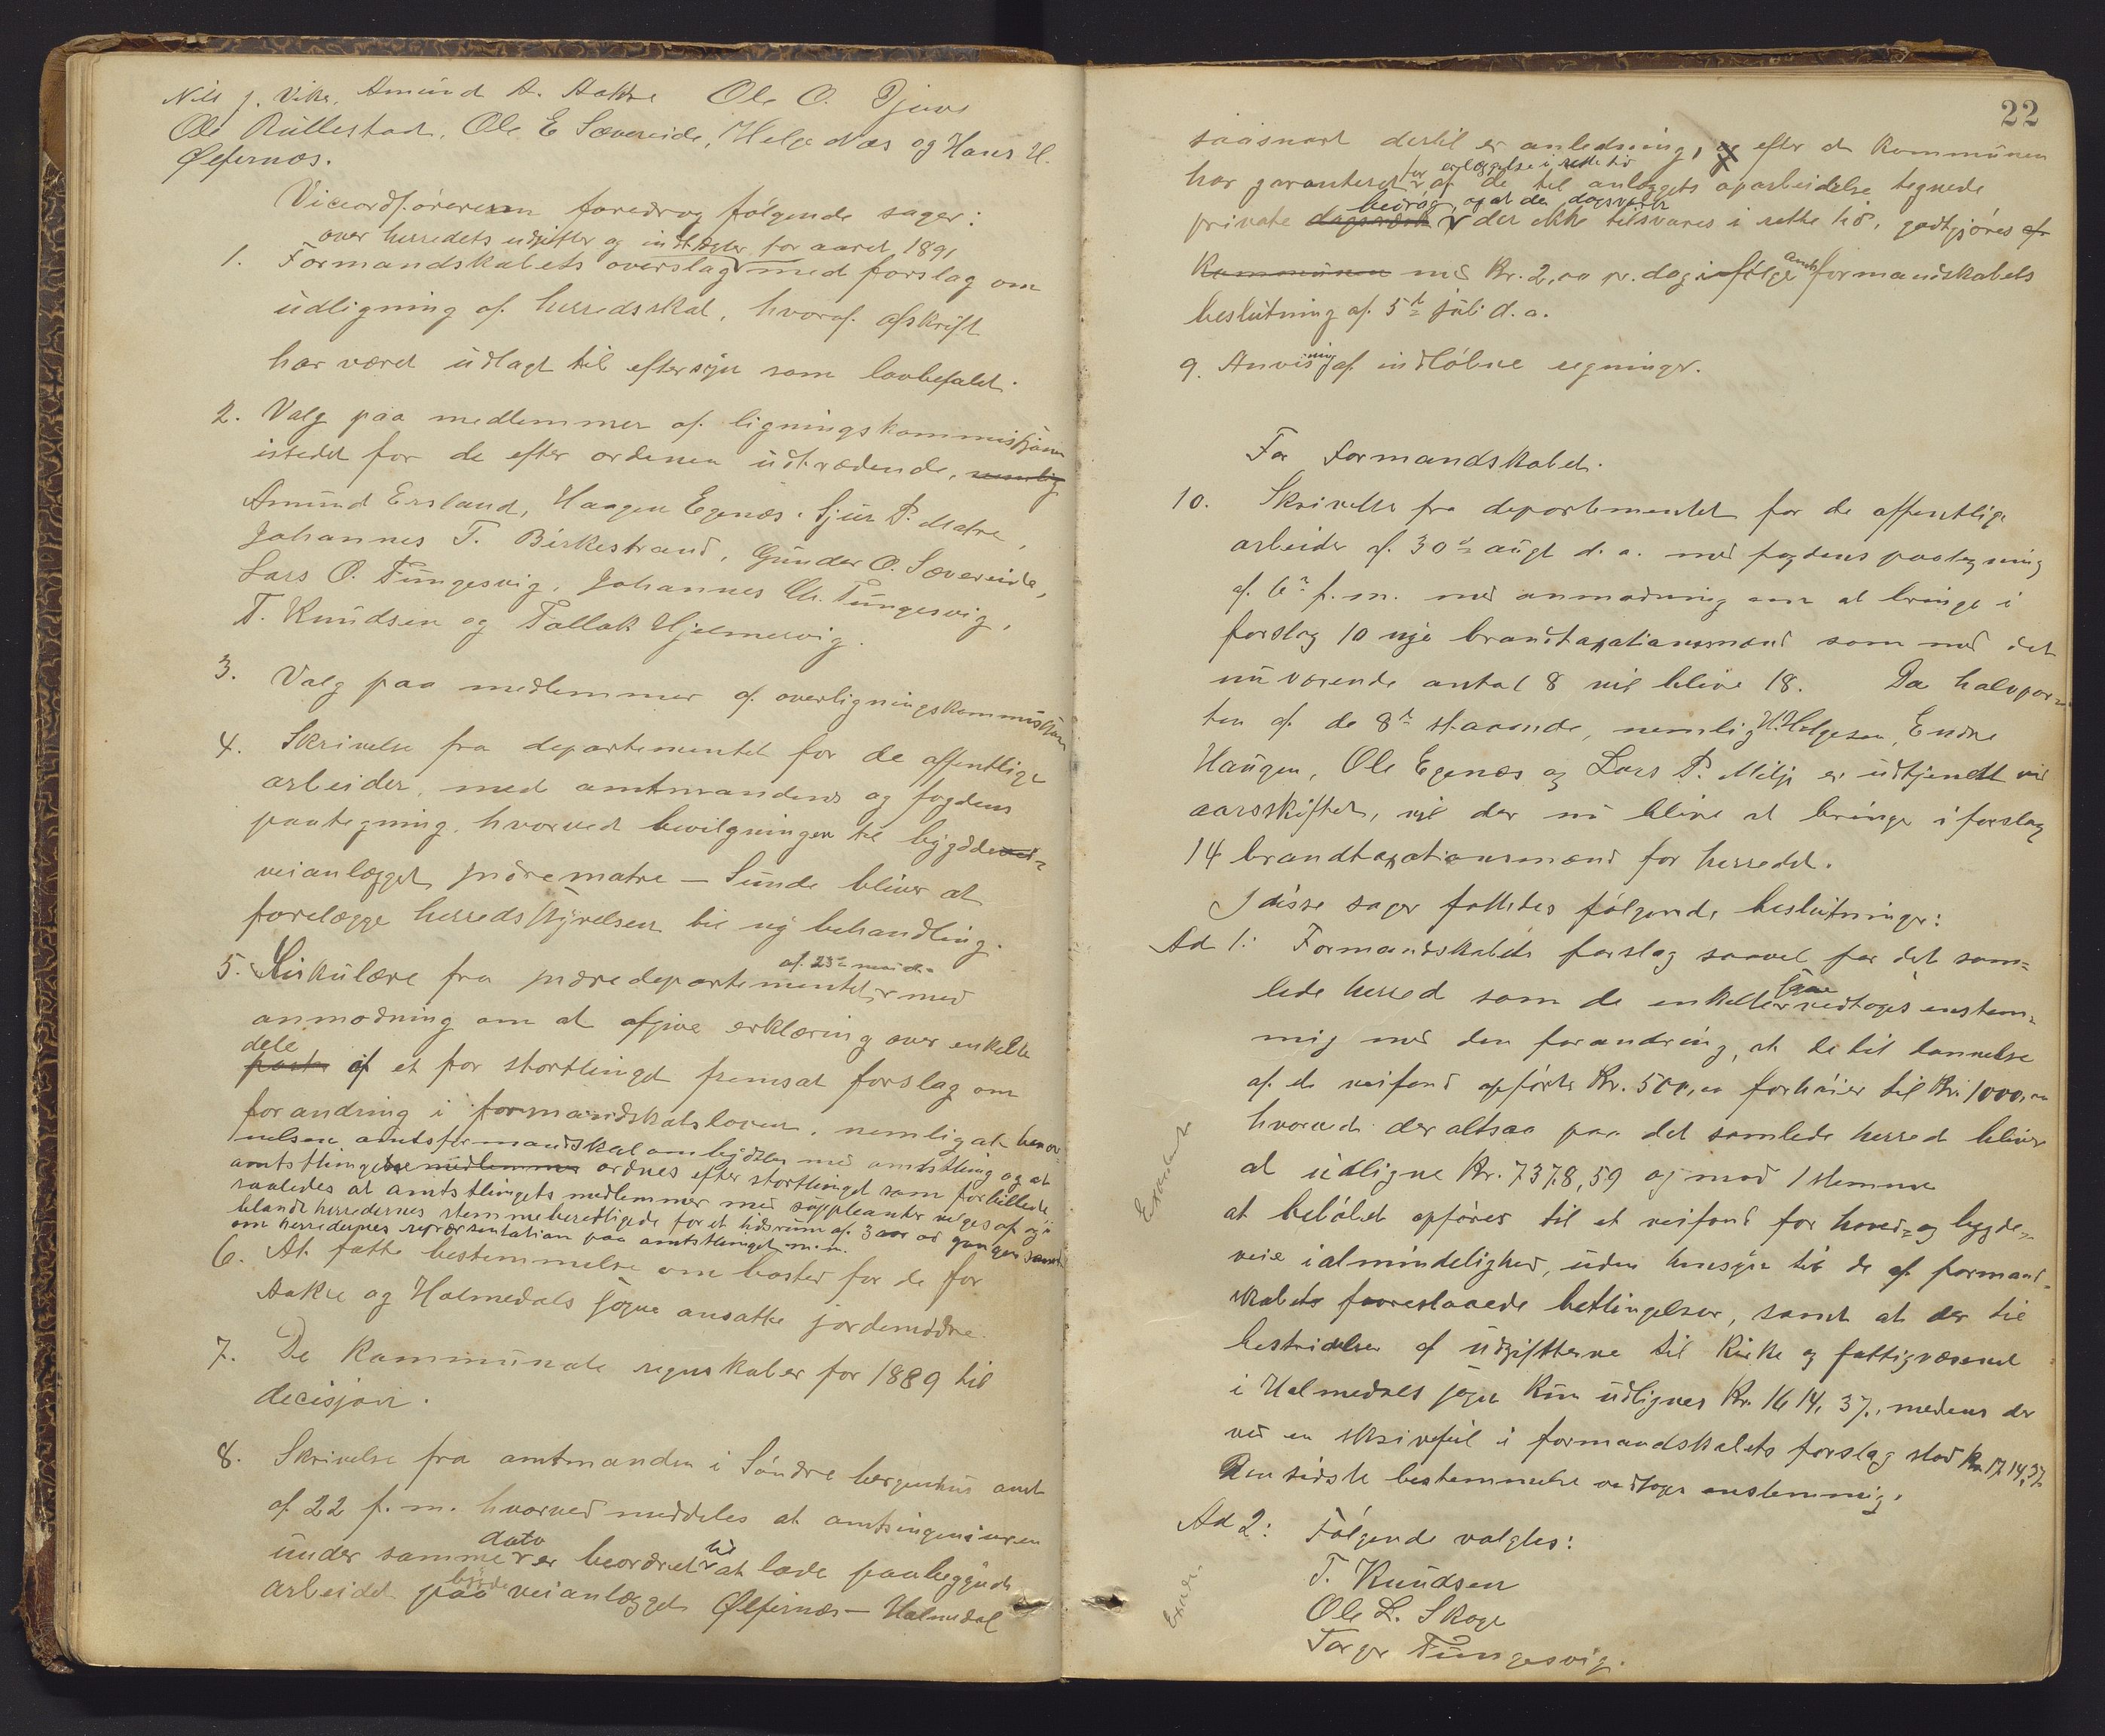 Nils J. Vika, Amund A. Aakre Ole O. Djuve
Ole Rullestad, Ole E Sævereide, Helge Næs og Hans H.
Ølfernæs.
Viceordføreren foredrog følgende sager:
over herredets udgifter og indtægter for aaret 1891
1. Formandskabets overslag med forslag om
udligning af herredsskat, hvoraf afskrift
har været udlagt til eftersyn som lovbefalet.
2. Valg paa medlemmer af ligningskommissjonen
istedet for de efter ordenen udtrædende, nemlig
Amund Ersland, Haagen Egenæs, Sjur P. Matre,
Johannes T. Birkestrand, Gunder O. Sævereide,
Lars O. Tungesvig, Johannes Ch. Tungesvig,
T. Knudsen og Tallak Hjelmervig.
3. Valg paa medlemmer af overligningskommissjon
4. Skrivelse fra departementet for de offentlige
arbeider, med amtmandens og fogdens
paategning, hvorved bevilgningen til bygde
veianlægget indrematre — Sunde bliver at
forelægge herredsstyrelsen til ny behandling.
af 23de mai d.a.
5. Cirkulære fra indredepartementet med
anmodning om at afgive erklæring over enkelte
dele
poster af et for storthinget fremsat forslag om
forandring i formandskabsloven, nemlig at benæv-
nelsen amtsformandskab ombyttes med amtsthing og at
amtsthingets medlemmer ordnes efter storthinget som forbillede
saaledes at amtsthingets medlemmer med suppleanter velges af og
blandt herredernes stemmeberettigede for et tidsrum af 3 aar ad gangen samt
om herredernes repræsentation paa amtsthinget m.m.
6. At fatte bestemmelse om bosted for de for
Aakre og Holmedals sogne ansatte jordemødre.
7. De kommunale regnskaber for 1889 til
decisjon.
8. Skrivelse fra amtmanden i Søndre bergenhus amt
af 22 f.m. hvorved meddeles at amtsingeniøren
dato til
under samme er beordret at lade paabegynde
bygde
arbeidet paa veianlægget Ølfernæs — Halmedal
22
saasnart dertil er anledning, og efter at kommunen
for erlæggelse i rette tid
har garanteret af de til anlægets oparbeidelse tegnede
bedrag, og at der dagsværk
private dagsværk der ikke tilsvares i rette tid, godtgjøres af
kommunen med Kr. 2,00 pr. dag ifølge amtsformandskabets
beslutning af 5te juli d.a.
9. Anvisning af indløbne regninger.
For Formandskabet.
10. Skrivelse fra departementet for de offentlige
arbeider af 30te augt d.a. med fogdens paategning
af 6te f.m. med anmodning om at bringe i
forslag 10 nye brandtaxationsmænd som med det
nuværende antal 8 vil blive 18. Da halvpar-
ten af de 8te staaende, nemlig H. Helgesen, Endre
Haugen, Ole Egenæs og Lars P. Milje er udtjendt ved
aarsskiftet, vil der nu blive at bringe i forslag
14 brandtaxationsmænd for herredet.
I disse sager fattedes følgende beslutninger:
Ad 1: Formandskabets forslag saavel for det sam-
sogne
lede herred som de enkelte vedtoges enstem-
mig med den forandring, at de til dannelse
af et veifond opførte Kr. 500,00 forhøies til Kr. 1000,00
hvorved der altsaa paa det samlede herred bliver
at udligne Kr. 7378,59 og mod 1 stemme
at beløbet opføres til et veifond for hoved- og bygde-
veie i almindelighed, uden hensyn til de af formand-
skabets foreslaaede betingelser, samt at der til
bestridelse af udgifterne til kirke og fattigvæsenet
i Halmedals sogn kun udlignes Kr. 1614,37, medens der
ved en skrivfeil i formandskabets forslag stod Kr. 1714,37.
Den sidste bestemmelse vedtoges enstemmig.
Ad 2: Følgende valgtes:
T. Knudsen
Ole L. Skoge
Torger Tungesvig.